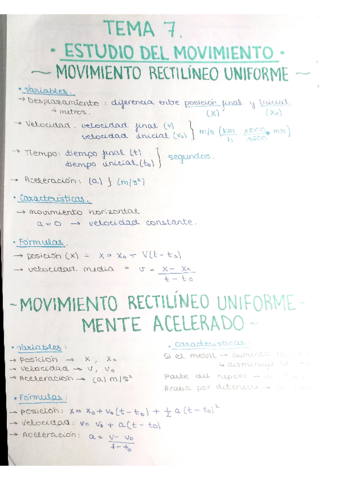 TEMA 7.
• ESTUDIO DEL MOVIMIENTO •
~ MOVIMIENTO RECTILÍNEO UNIFORME ~
• Variables.
→ Desplazamiento: diferencia entre posición final y inicial
→ metros. (x) (x₀)
→ Velocidad. velocidad final (v)
velocidad inicial (v₀) } m/s (km/h
→ Tiempo: tiempo final (t)
tiempo inicial (t₀) } segundos.
→ Aceleración: (a) } (m/s²)
• Características.
→ movimiento horizontal
a = 0 → velocidad constante.
• Fórmulas.
→ posición (x) = x = x₀ + v(t - t₀)
→ velocidad media = v = x - x₀ / t - t₀
- MOVIMIENTO RECTILÍNEO UNIFORME-
MENTE ACELERADO -
• Variables:
→ Posición → x, x₀
→ Velocidad → v, v₀
→ Aceleración → (a) m/s²
• Características
Si el móvil → aumenta
→ disminuye
Parte del reposo →
Acaba por detenerse →
• Fórmulas:
→ Posición: x = x₀ + v₀(t - t₀) + ½ a (t - t₀)²
→ Velocidad: v = v₀ + a(t - t₀)
→ Aceleración: a = v - v₀ / t - t₀